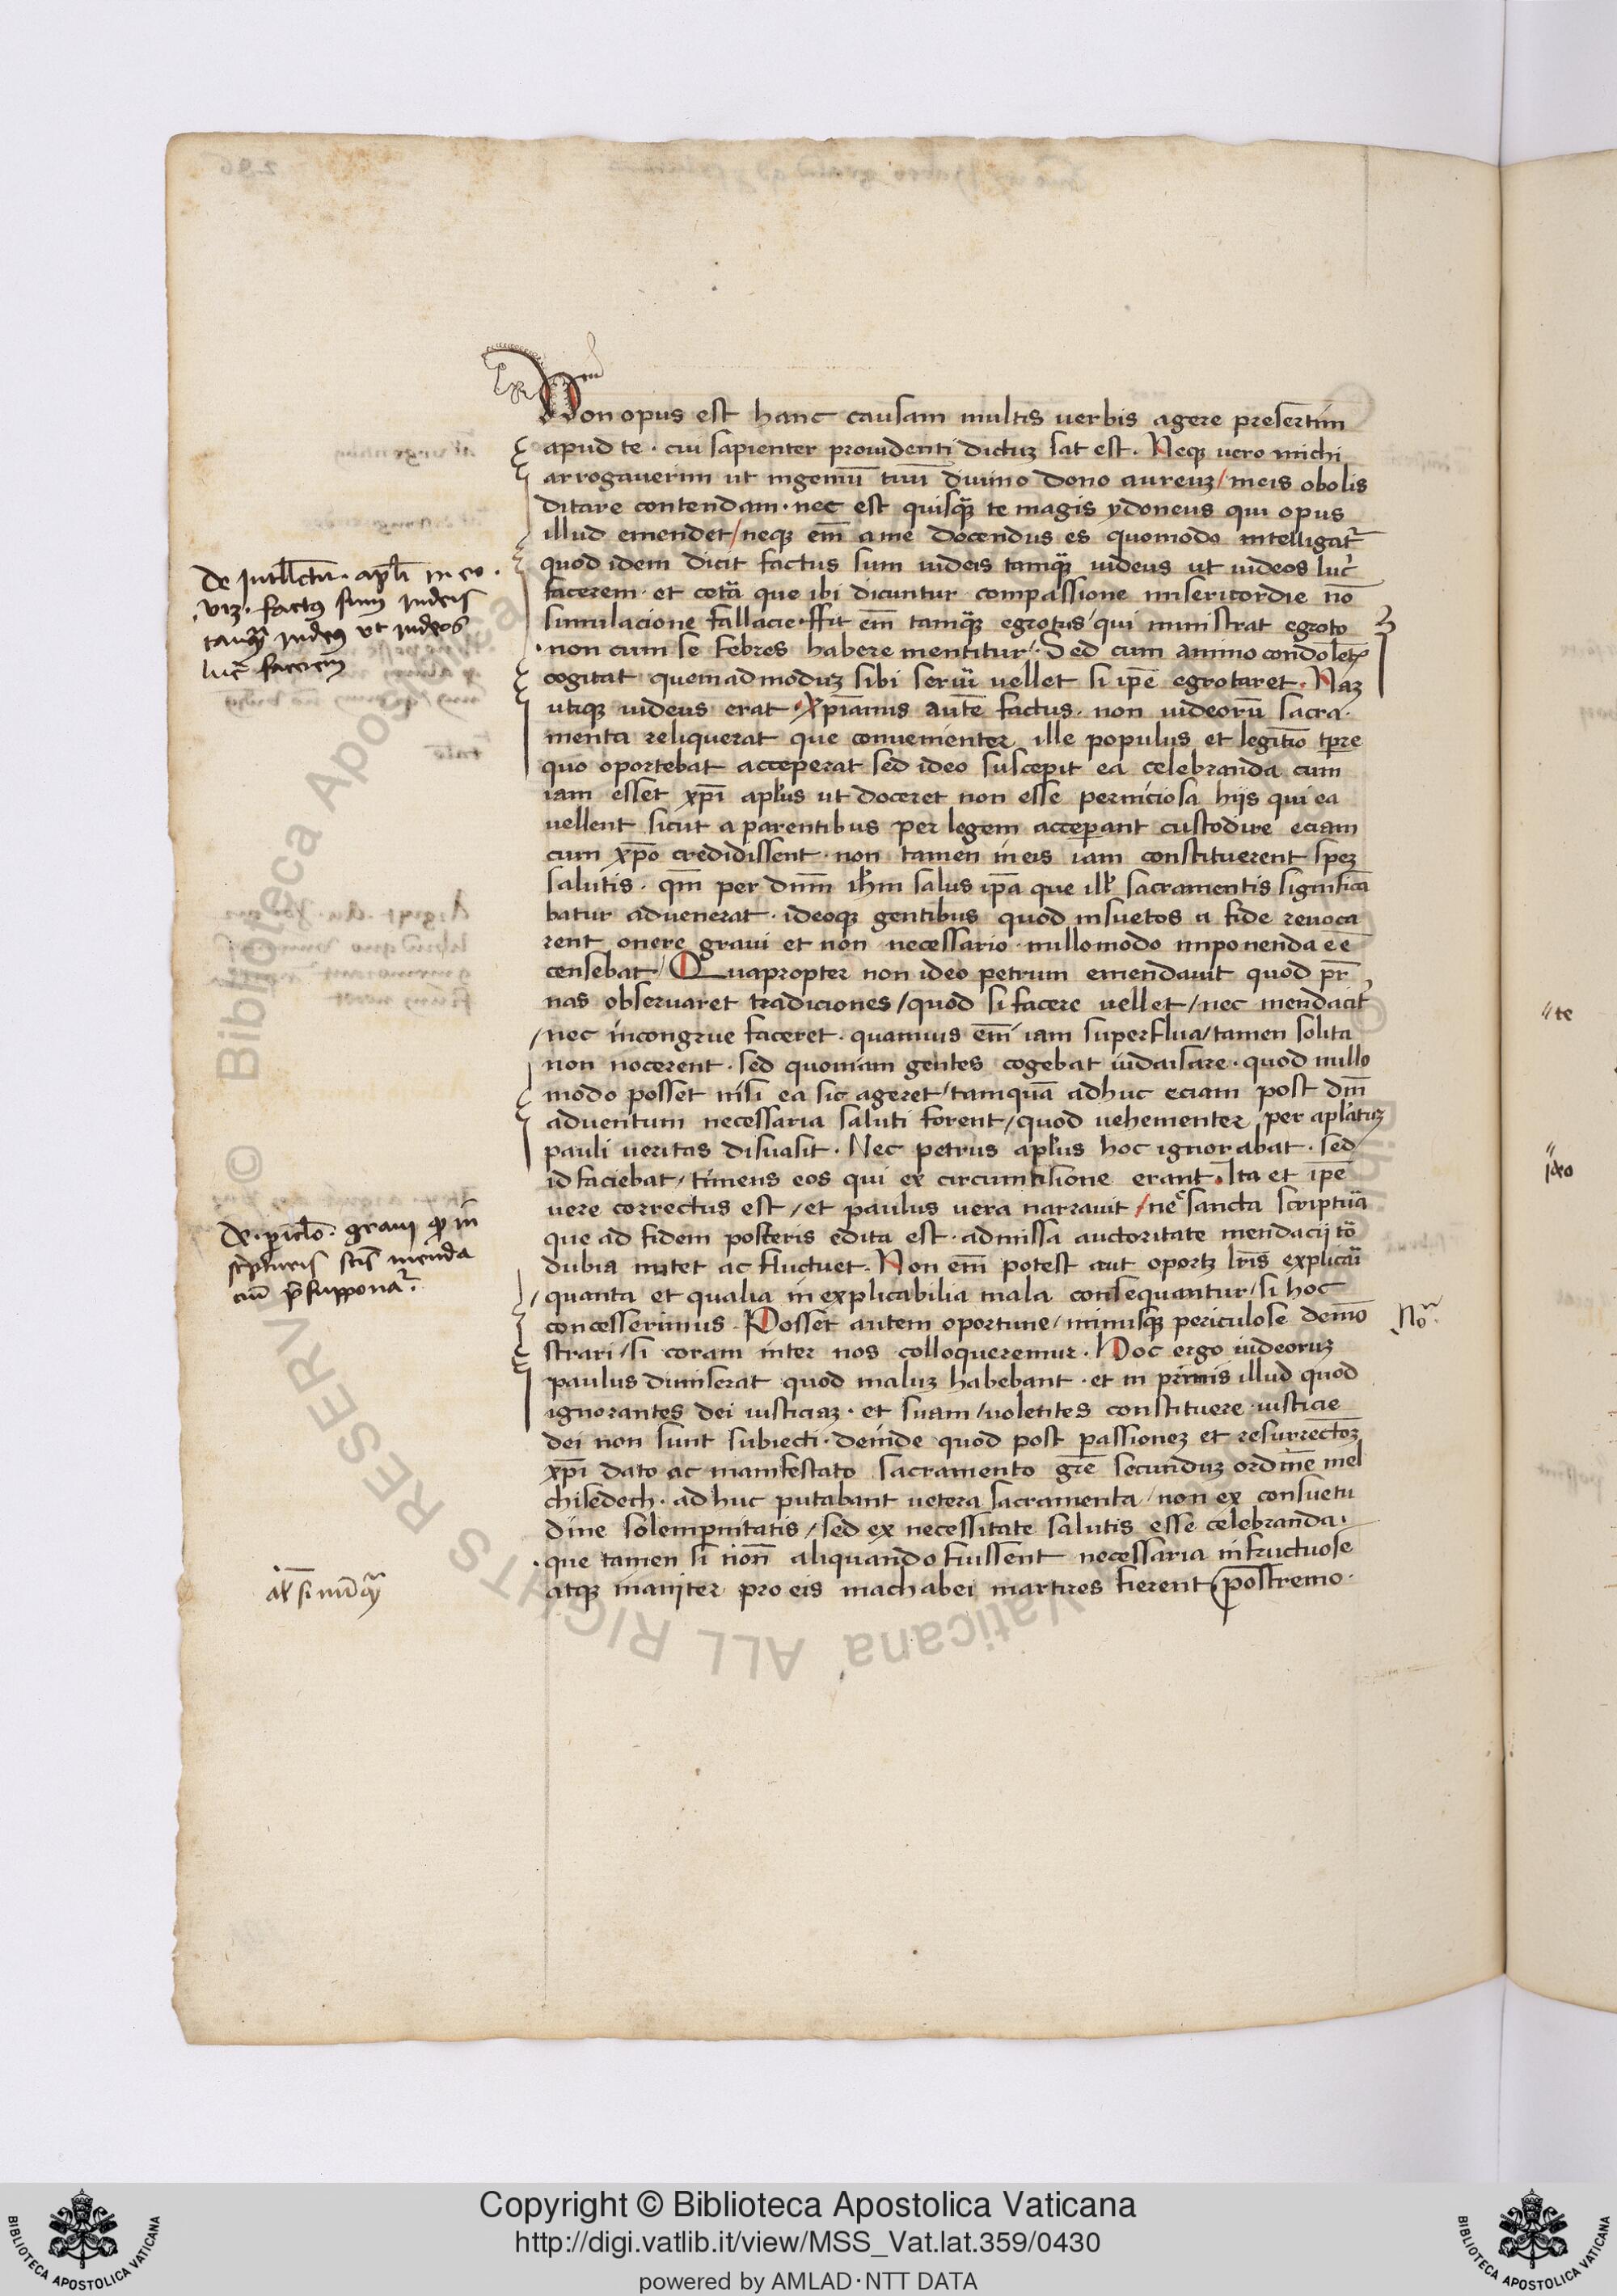 Non opus est hanc causam multis uerbis agere presertim
apud te · cui sapienter prouidenti dictuʒ sat est. Neqʒ uero michi
arrogauerim ut ingeniū tuū diuino dono aureuʒ / meis obolis
ditare contendam · nec est quisqʒ̄ te magis ydoneus qui opus
illud emendet / neqʒ em̄ a me docendus es quomodo intelligat᷑
quod idem dicit factus sum iudeis tamqʒ̄ iudeus ut iudeos luc᷑
facerem · et cetā que ibi dicuntur compassione misericordie nō
simulacione fallacie · ffit em̄ tamqʒ̄ egrotus / qui ministrat egroto
· non cum se febres habere mentitur / · Sed cum animo condolet᷑
cogitat quemadmoduʒ sibi seruī uellet si ipē egrotaret. Naʒ
utiqʒ iudeus erat · xp̄ianus autē factus · non iudeorū sacra·
menta reliquerat que conuenienter ille populus et legittīo tp̄re
quo oportebat acceperat sed ideo suscepit ea celebranda cum
iam esset xp̄i apl̄us ut doceret non esse perniciosa hijs qui ea
uellent sicut a parentibus per legem acceperant custodire eciam
cum xp̄o credidissent · non tamen in eis iam constituerent speʒ
salutis · qm̄ per dnm̄ ih̄m salus ip̄a que ill᷑ sacramentis significa
batur aduenerat · ideoqʒ gentibus quod insuetos a fide reuoca
rent onere graui et non necessario · nullomodo imponenda ēē
censebat / Quapropter non ideo petrum emendauit quod pr̄
nas obseruaret tradiciones / quod si facere uellet / nec mendacit᷑
/ nec incongrue faceret · quamuis em̄ iam superflua / tamen solita
non nocerent · sed quoniam gentes cogebat iudaisare · quod nullo
modo posset nisi ea sic ageret / tamquā adhuc eciam post dn̄i
aduentum necessaria saluti forent / quod uehementer per apl̄atuʒ
pauli ueritas disuasit · Nec petrus apl̄us hoc ignorabat · sed
id faciebat / timens eos qui ex circumcisione erant. Ita et ipē
uere correctus est / et paulus uera narrauit / ne sancta scriptuā
que ad fidem posteris edita est · admissa auctoritate mendacij tō
dubia nutet ac fluctuet. Non em̄ potest aut oportʒ lr̄is explicaī
/ quanta et qualia inexplicabilia mala consequantur / si hoc
concesserimus · Posset autem oportune / minusqʒ periculose demō
strari / si coram inter nos colloqueremur · Hoc ergo iudeoruʒ
paulus dimiserat quod maluʒ habebant · et in primis illud quod
ignorantes dei iusticiaʒ · et suam / uolentes constituere · iusticie
dei non sunt subiecti · deinde quod post passioneʒ et resurrectōʒ
xp̄i dato ac manifestato sacramento gr̄e secunduʒ ordinē mel
chisedech · adhuc putabant uetera sacramenta / non ex consuetu
dine solempnitatis / sed ex necessitate salutis esse celebranda ·
· que tamen si non̄ aliquando fuissent necessaria infructuose
atqʒ inaniter pro eis machabei martires fierent postremo ·
De Intll̄ctu · apl̄i in eo ·
vtʒ · factꝰ sum iudeis
tanqʒ̄ iudeꝰ vt iudeos
luc᷑ facerem
De · piclō · graui qd̄ in
scripturis scīs menda
ciū p̄supponat᷑
No᷑
al᷑ si nūqʒ̄
te
ideo
Copyright © Biblioteca Apostolica Vaticana
http://digi.vatlib.it/view/MSS_Vat.lat.359/0430
powered by AMLAD·NTT DATA
BIBLIOTECA APOSTOLICA VATICANA
BIBLIOTECA APOSTOLICA VATICANA